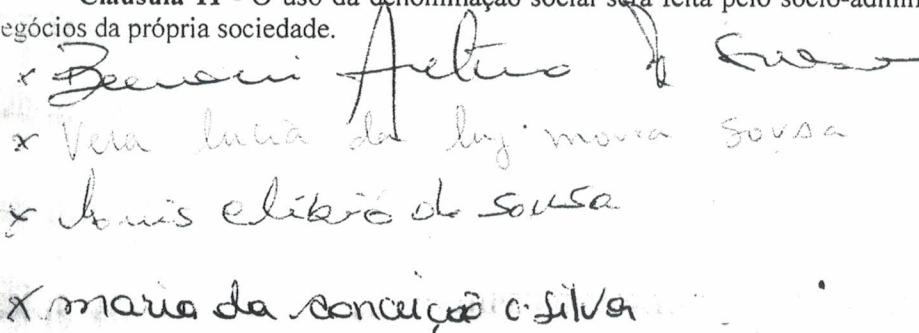 Cláusula 11 - O uso da denominação social será feita pelo sócio-admini
egócios da própria sociedade.
x
x Vera Lucia da Luz moura Sousa
x Louis elibio de Sousa
x maria da conceição c. silva